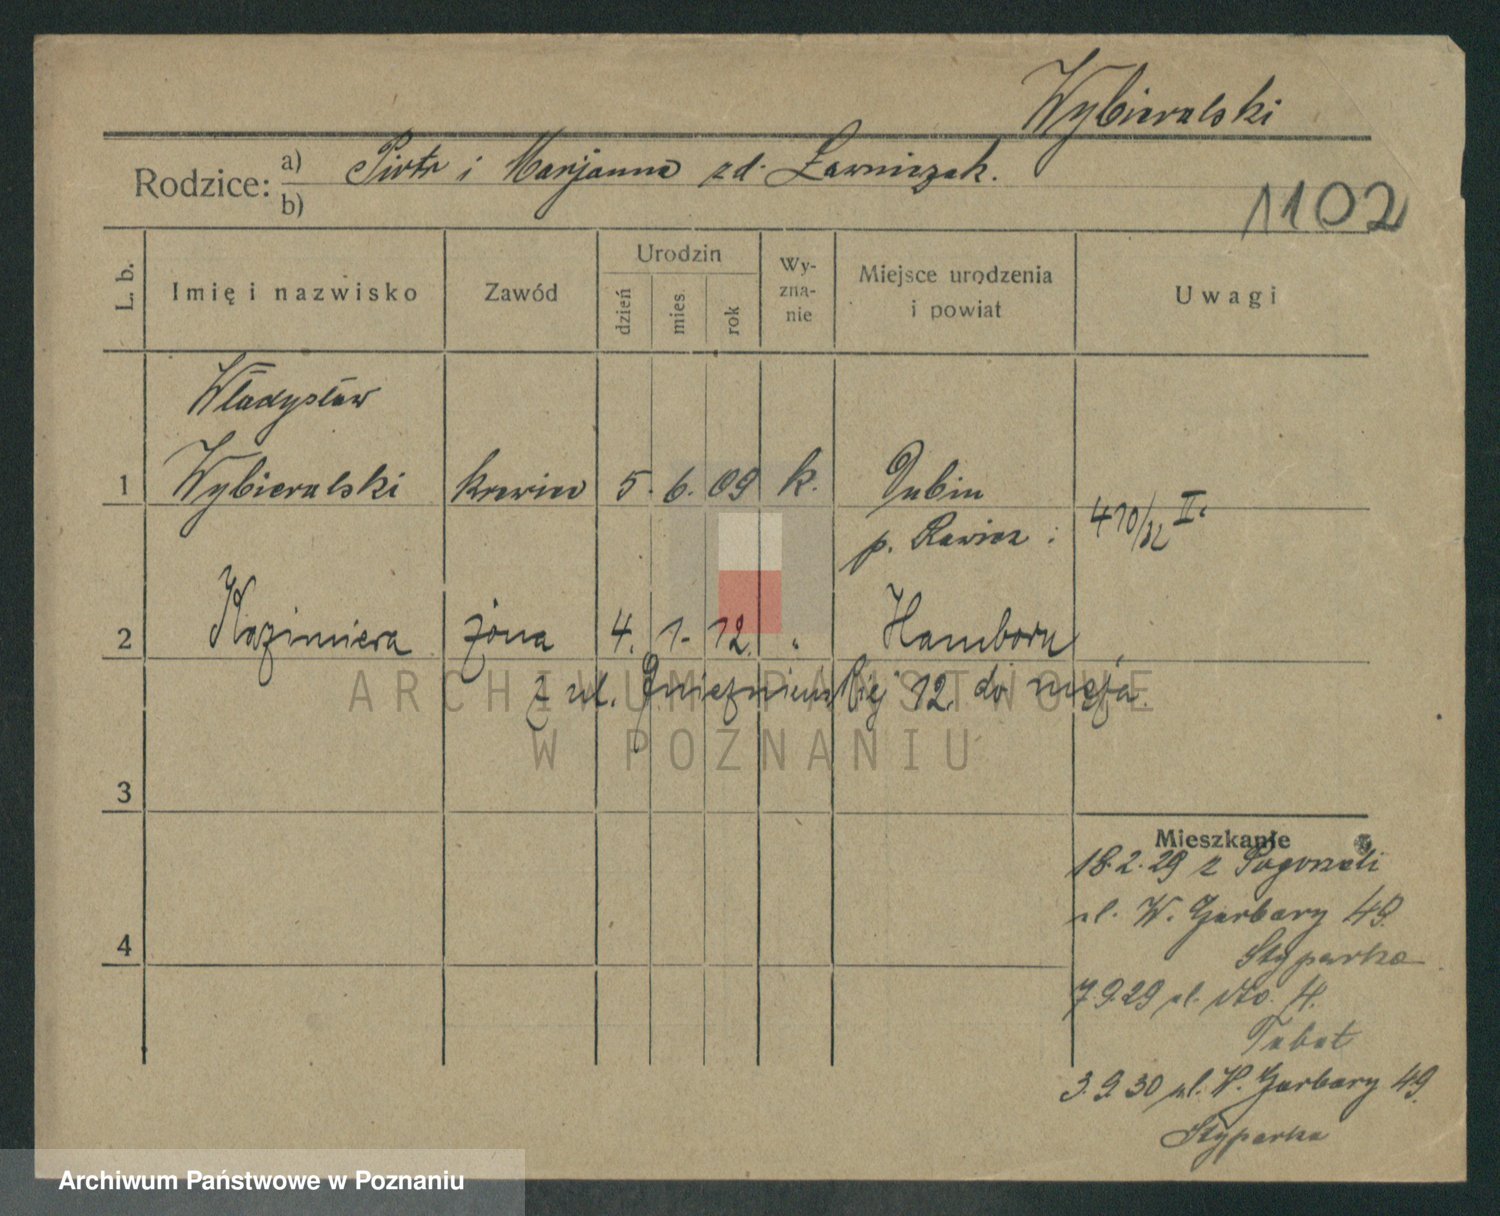 Wybieralski
Rodzice: a) Piotr i Marjanna zd. Ławniczak.
b)
1102
L. b.
Imię i nazwisko
Zawód
Urodzin
dzień
mies
rok
Wy-
zna-
nie
Miejsce urodzenia
i powiat
Uwagi
Władysław
1 Wybieralski krawiec 5. 6. 09 k. Dubin
p. Rawicz
410/32 II
2 Kazimiera żona 4. 1. 12. " Hamborn
z ul. Gnieźnieńskiej 12. do męża.
ARCHIWUM PAŃSTWOWE
W POZNANIU
3
Mieszkanie
18.2.29 z Pogorzeli
ul. W. Garbary 49.
Styparka
4
7.9.29 ul. dto. 4.
Tabat
3.9.30 ul. W. Garbary 49.
Styparka
Archiwum Państwowe w Poznaniu